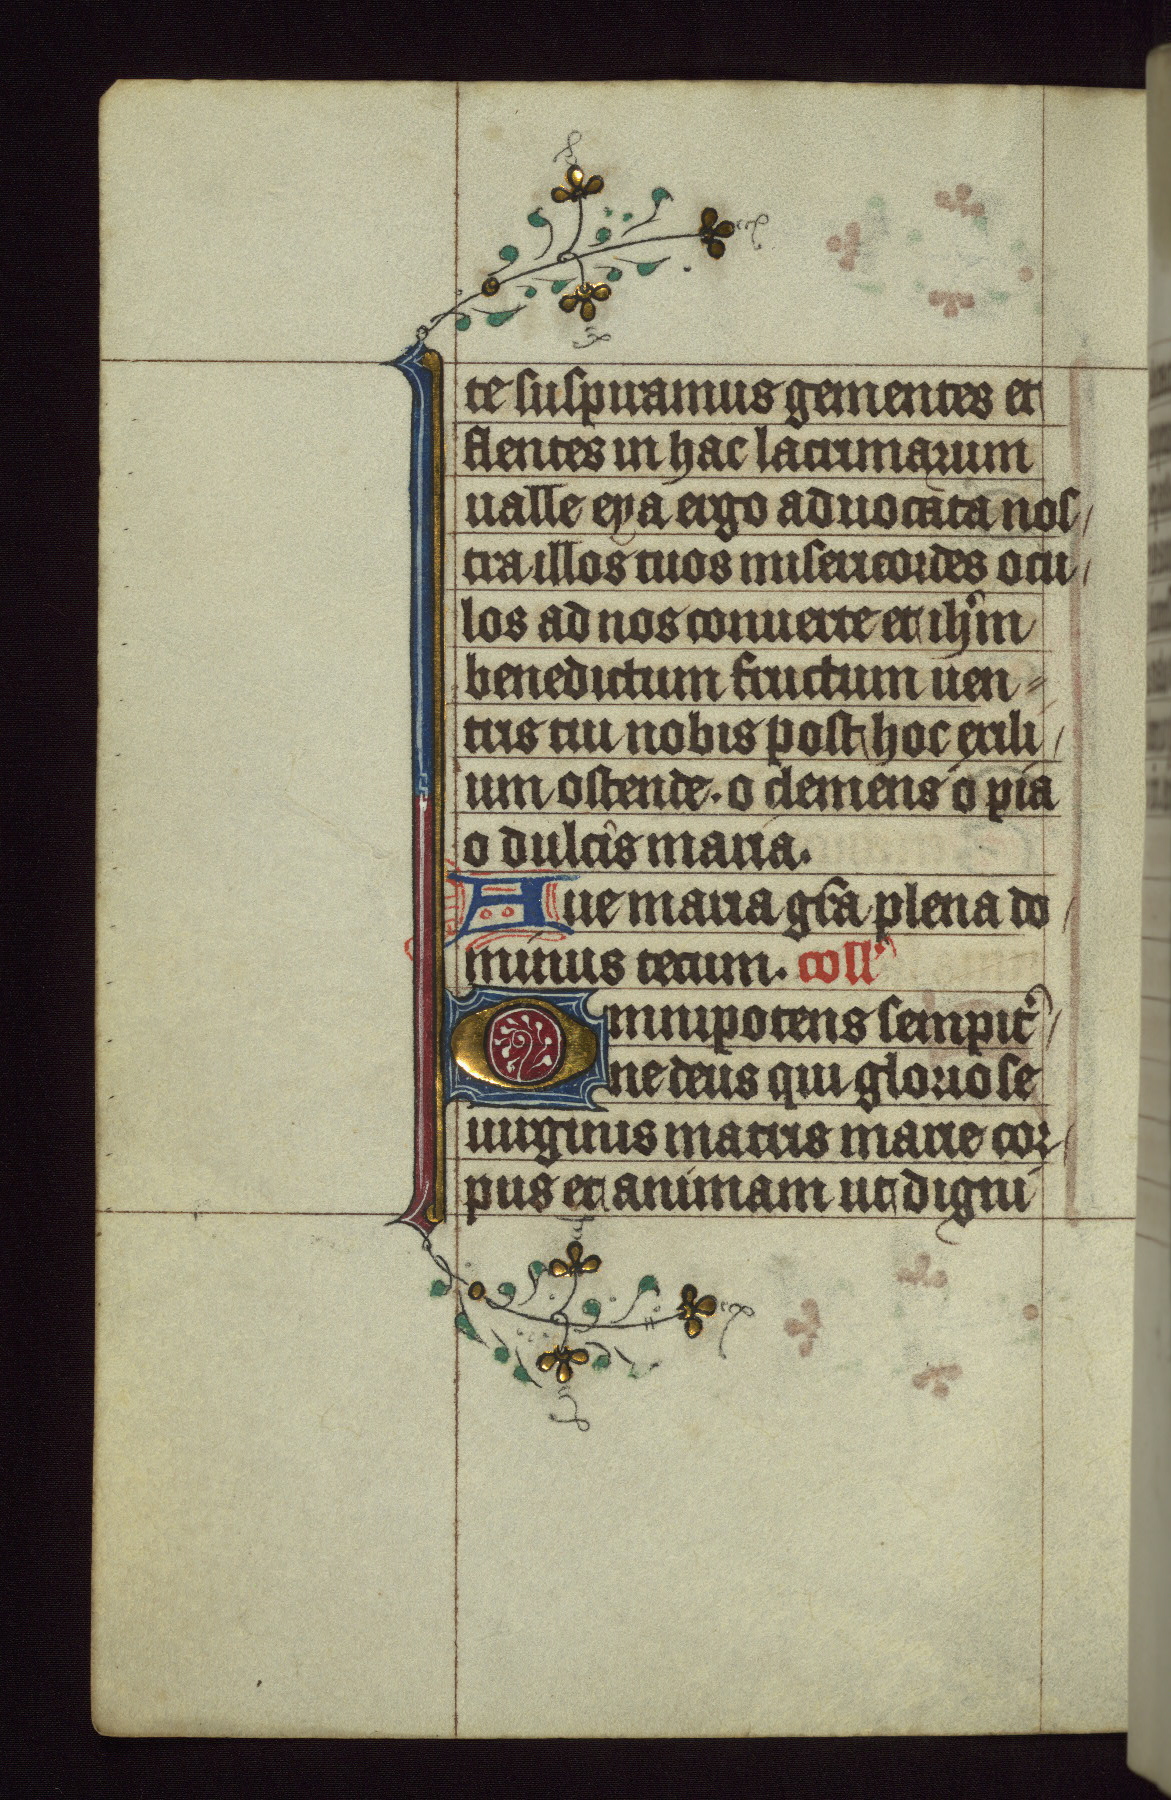 te suspiramus gementes et
flentes in hac lacrimarum
ualle eya ergo aduocata nos/
tra illos tuos misericordes ocu/
los ad nos conuerte et ihm̄
benedictum fructum uen〃
tris tui nobis post hoc exili/
um ostende. o clemens o pia
o dulcis maria.
Aue maria gr̄a plena do/
minus tecum. coll'
Omnipotens sempit̄/
ne deus qui gloriose
uirginis matris marie cor/
pus et animam ut digni